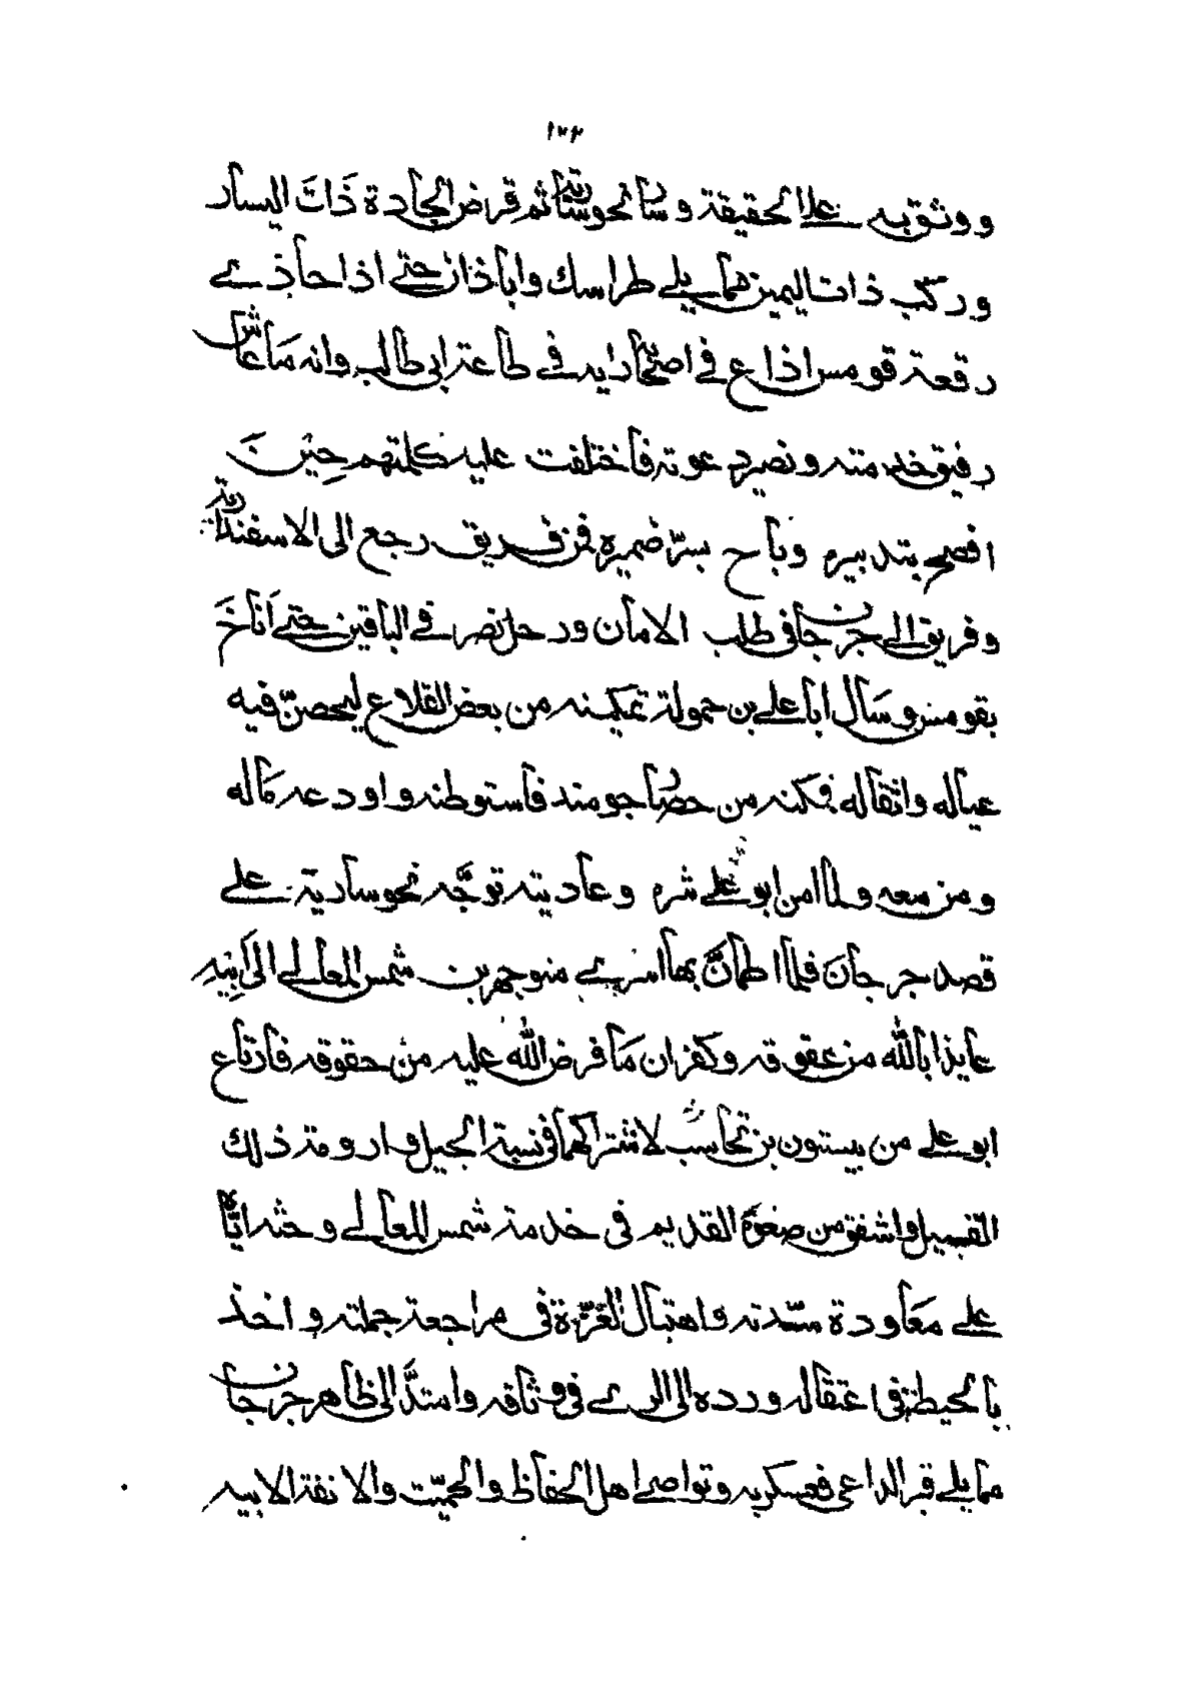 ١٢٢
ووثوق به على الحقيقة وسار نحو سارية ثم قرض الجادة ذات اليسار
وركب ذات اليمين مما يلي طراسك واباذان حتى اذا حاذى
رقعة قومس اذاع في اصحابه رايه في طاعة ابي طالب وانه ما عاش
رفيق خدمته ونصير دعوته فاختلفت عليه كلمتهم حِيْنَ
افصح بتدبيره وباح بسرّ ضميره فمن فريق رجع الى الاسفندارية
وفريق الى جرجان في طلب الامان ورحل نصر في الباقين حتى اَناخَ
بقومس وسَأل ابا علي بن حمولة تمكينه من بعض القلاع ليحصّن فيه
عياله واثقاله فمكنه من حصار جومند فاستوطنه واودعه مَاله
ومن معه ولما امن ابو علي شره وعاديته توجَّه نحو سارية على
قصد جرجانَ فلما اطمأنَّ بها اسرى منوجهر بن شمس المعالي الى اَبِيْهِ
عايذا بالله من عقوقه وكفران مَا فرض اللّه عليه من حقوقه فارتاع
ابو علي من بيستون بن تجاسب لاشتراكهما في نسبة الجيل وارومة ذلك
القبيل واشفق من صغوه القديم في خدمة شمس المعالي وحثه ايّاه
على مَعَاودة سدّته واهتبال الغرّة في مراجعة جملته واخذ
بالحيطة في اعتقاله ورده الى الري في وثاقه واستدَّ الى ظاهر جرجان
مما يلي قبر الداعي فعسكر به وتواصى اهل الحفاظ والحميّت والانفة الابيه